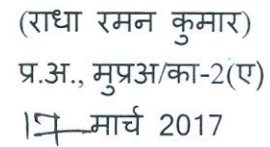 (राधा रमन कुमार)
प्र.अ., मुप्रअ/का-2(ए)
17 मार्च 2017